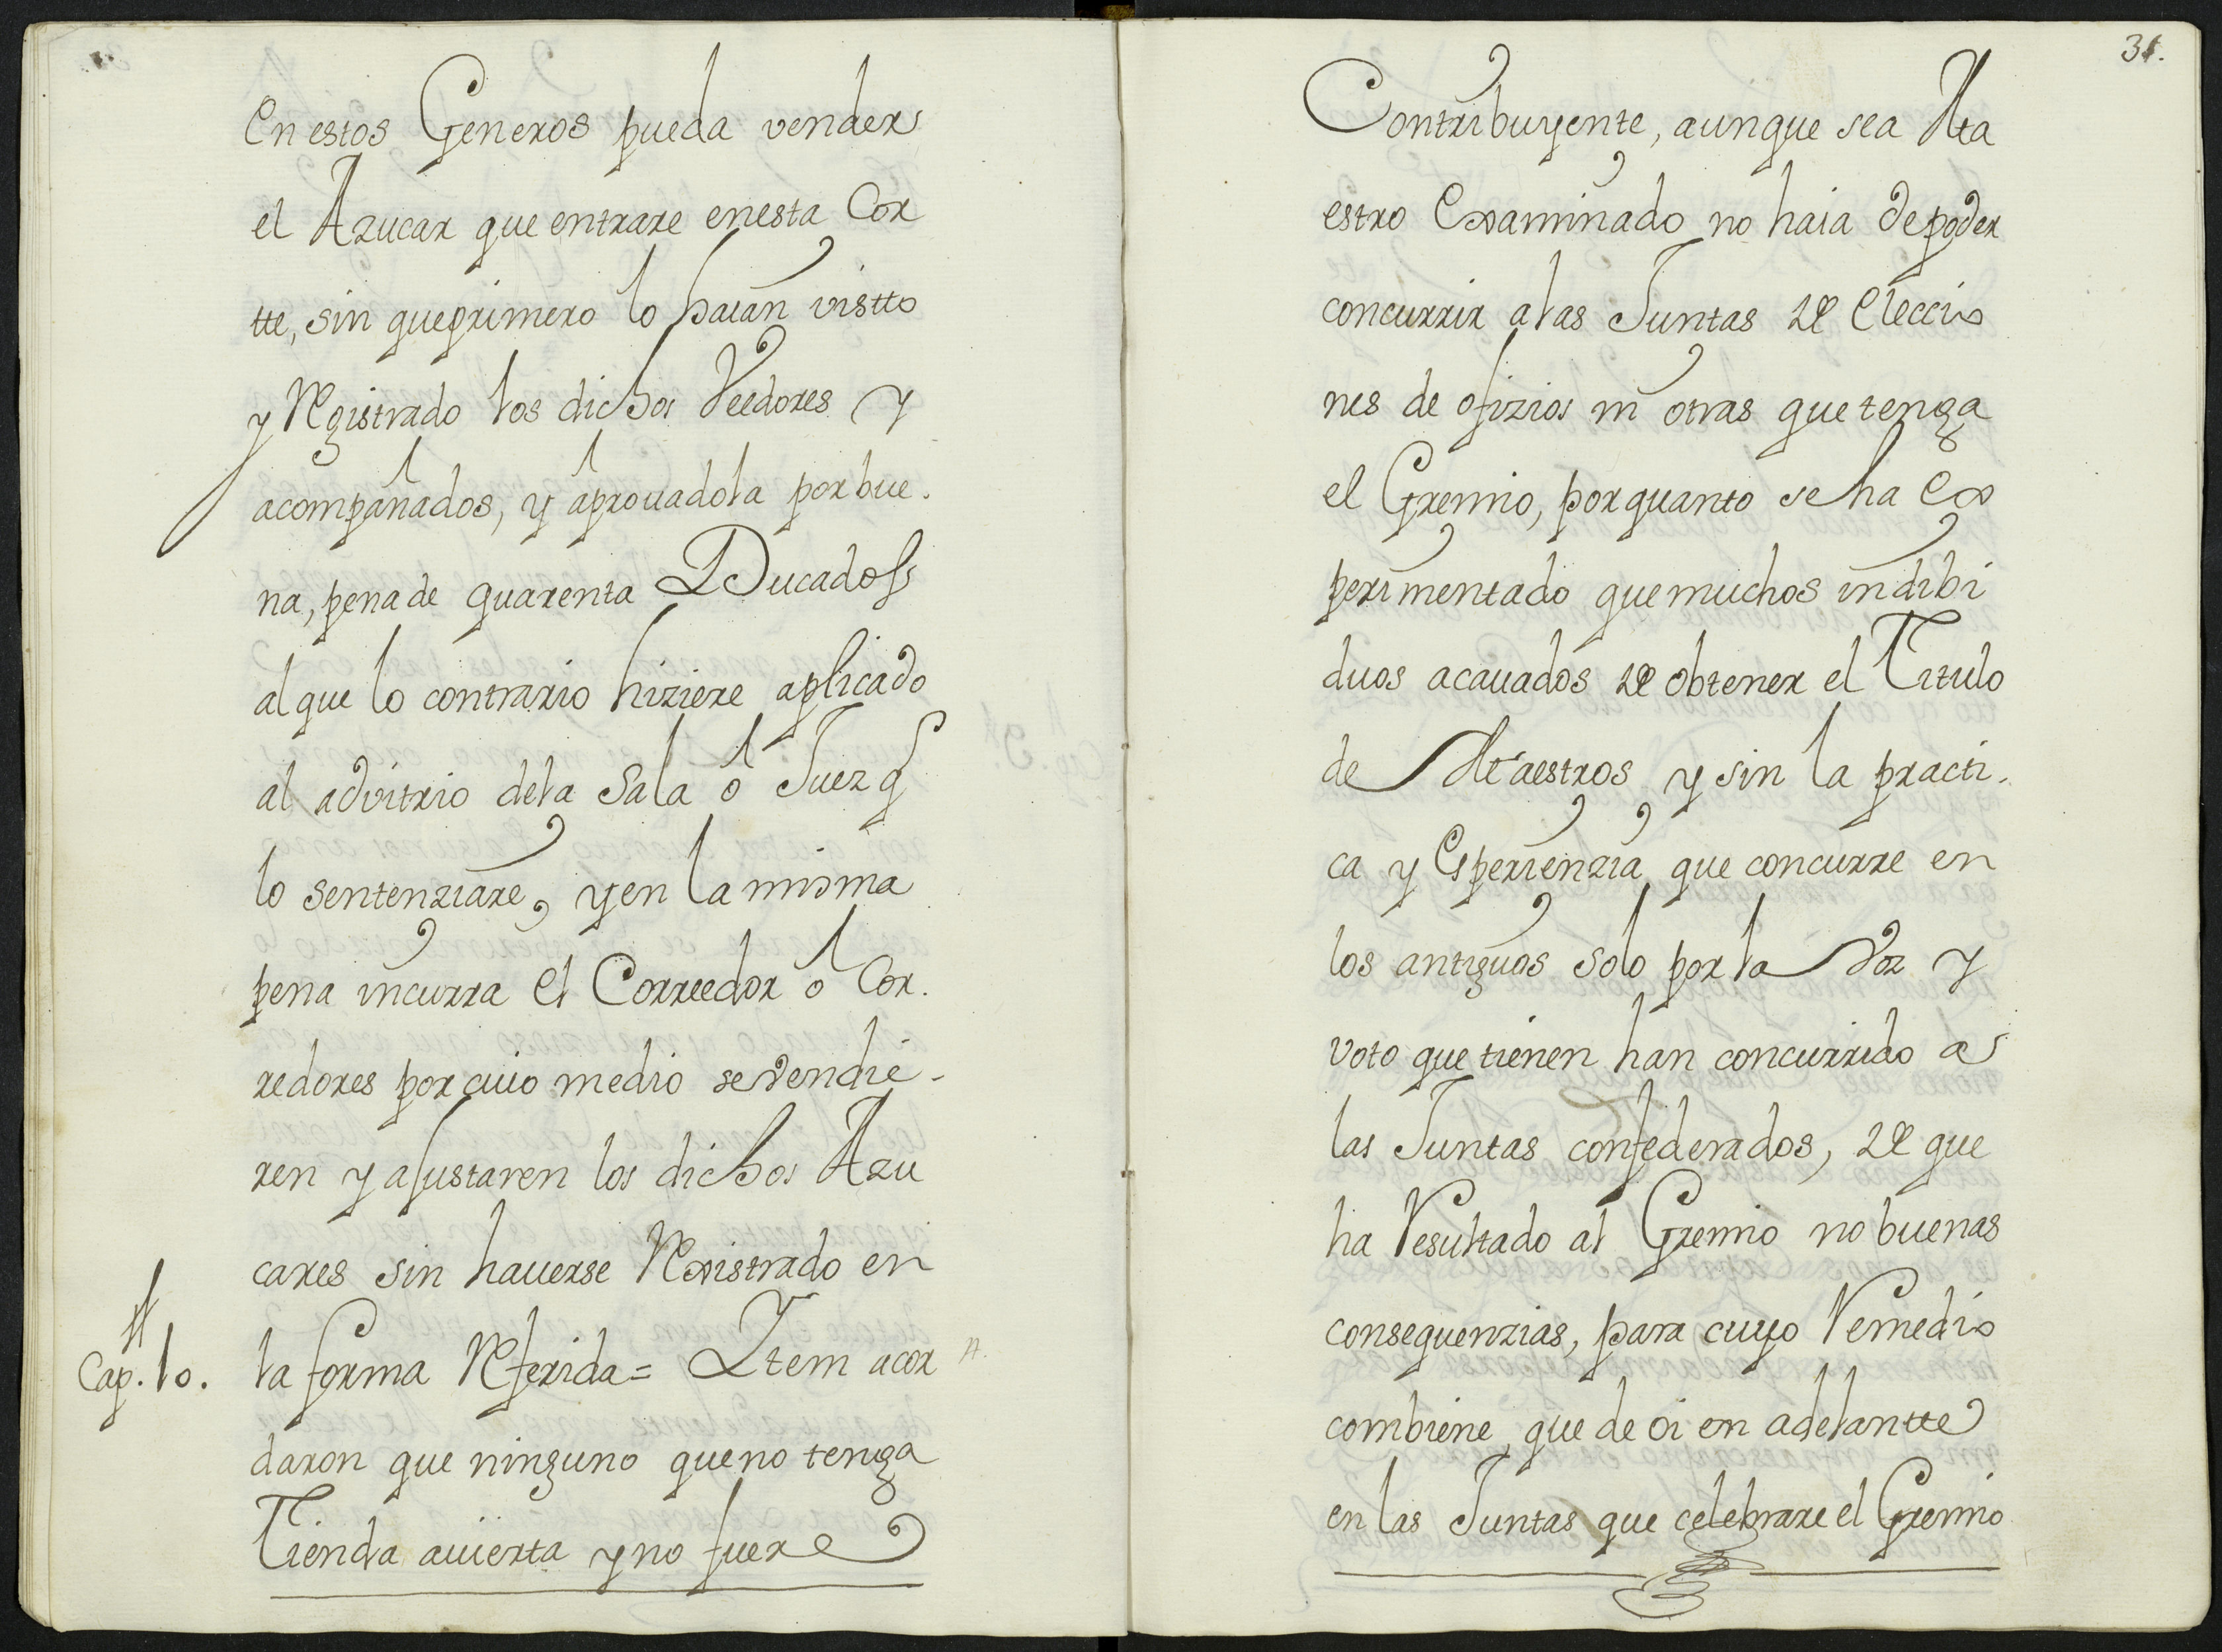 En estos Generos pueda vender
el Azucar que entrare enesta Cor
tte, sin queprimero lo haian vistto
y Registrado los dichos Veedores y
acompañados, y aprouadola por bue.
na, pena de quarenta Ducados
al que lo contrario hiziere aplicado
al advitrio dela Sala ó Juez q
lo sentenziare, y en la misma
pena incurra el Correedor ó Cor.
redores por cuio medio se vendie-
ren y ajustaren los dichos Azu
cares sin hauerse Rexistrado en
Cap. 10.
la forma Referida = Item acor
daron que ninguno que no tenga
Tienda auierta y no fuere
31.
Contribuyente, aunque sea Ma
estro Examinado no haia de poder
concurrir alas Juntas de Eleccio
nes de ofizios ni otras que tenga
el Gremio, por quanto se ha Ex
perimentado que muchos indibi
duos acauados de obtener el Titulo
de Maestros y sin la practi-
ca y Esperienzia que concurre en
los antiguos solo por la Voz y
voto que tienen han concurrido a
las Juntas confederados, de que
ha Resultado al Gremio no buenas
consequenzias, para cuyo Remedio
combiene que de oi en adelantte
en las Juntas que celebrare el Gremio